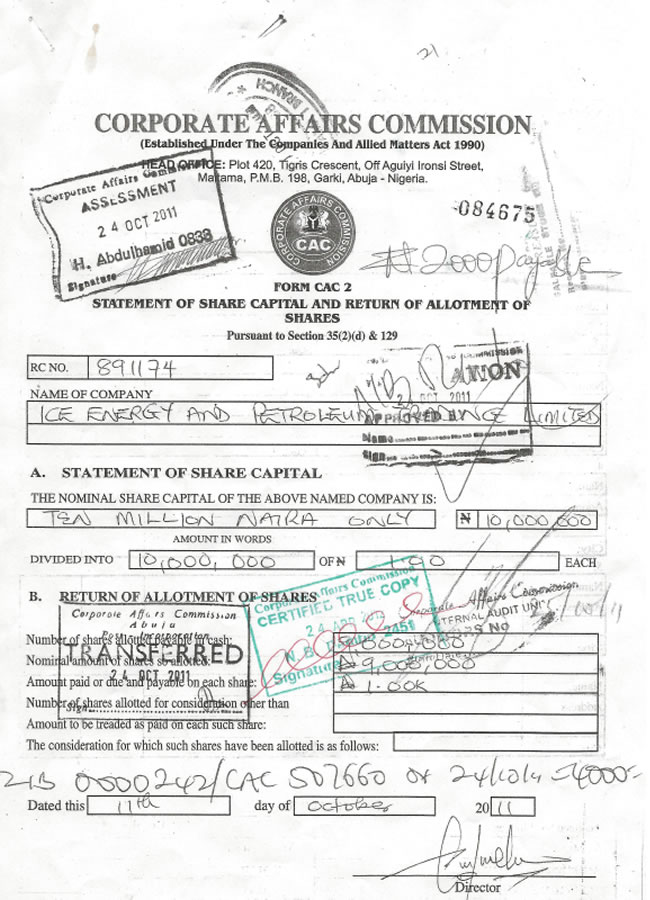 21
BRANCH
CORPORATE AFFAIRS COMMISSION
(Established Under The Companies And Allied Matters Act 1990)
HEAD OFFICE: Plot 420, Tigris Crescent, Off Aguiyi Ironsi Street,
Maitama, P.M.B. 198, Garki, Abuja - Nigeria.
Corporate Affairs Commission
ASSESSMENT
24 OCT 2011
H. Abdulhamid 0838
Signature
084675
CORPORATE AFFAIRS COMMISSION
CAC
₦2000 payable
FORM CAC 2
STATEMENT OF SHARE CAPITAL AND RETURN OF ALLOTMENT OF
SHARES
Pursuant to Section 35(2)(d) & 129
RC NO. 891174
OCT 2011
APPROVED BY
Name
Sign
NAME OF COMPANY
ICE ENERGY AND PETROLEUM LIMITED
A. STATEMENT OF SHARE CAPITAL
THE NOMINAL SHARE CAPITAL OF THE ABOVE NAMED COMPANY IS:
TEN MILLION NAIRA ONLY ₦ 10,000,000
AMOUNT IN WORDS
DIVIDED INTO 10,000,000 OF ₦ 1.00 EACH
B. RETURN OF ALLOTMENT OF SHARES
Corporate Affairs Commission
CERTIFIED TRUE COPY
24
2451
Signature
Corporate Affairs Commission
INTERNAL AUDIT UNIT
Corporate Affairs Commission
Abuja
Post Incorporation
TRANSFERRED
24 OCT 2011
Sign
Number of shares allotted payable in cash:
Nominal amount of shares so allotted: ₦ 9,000,000
Amount paid or due and payable on each share: ₦ 1.00k
Number of shares allotted for consideration other than
Amount to be treaded as paid on each such share:
The consideration for which such shares have been allotted is as follows:
0000242/CAC 507660 24/10/11 =4000=
Dated this 11th day of October 2011
Director